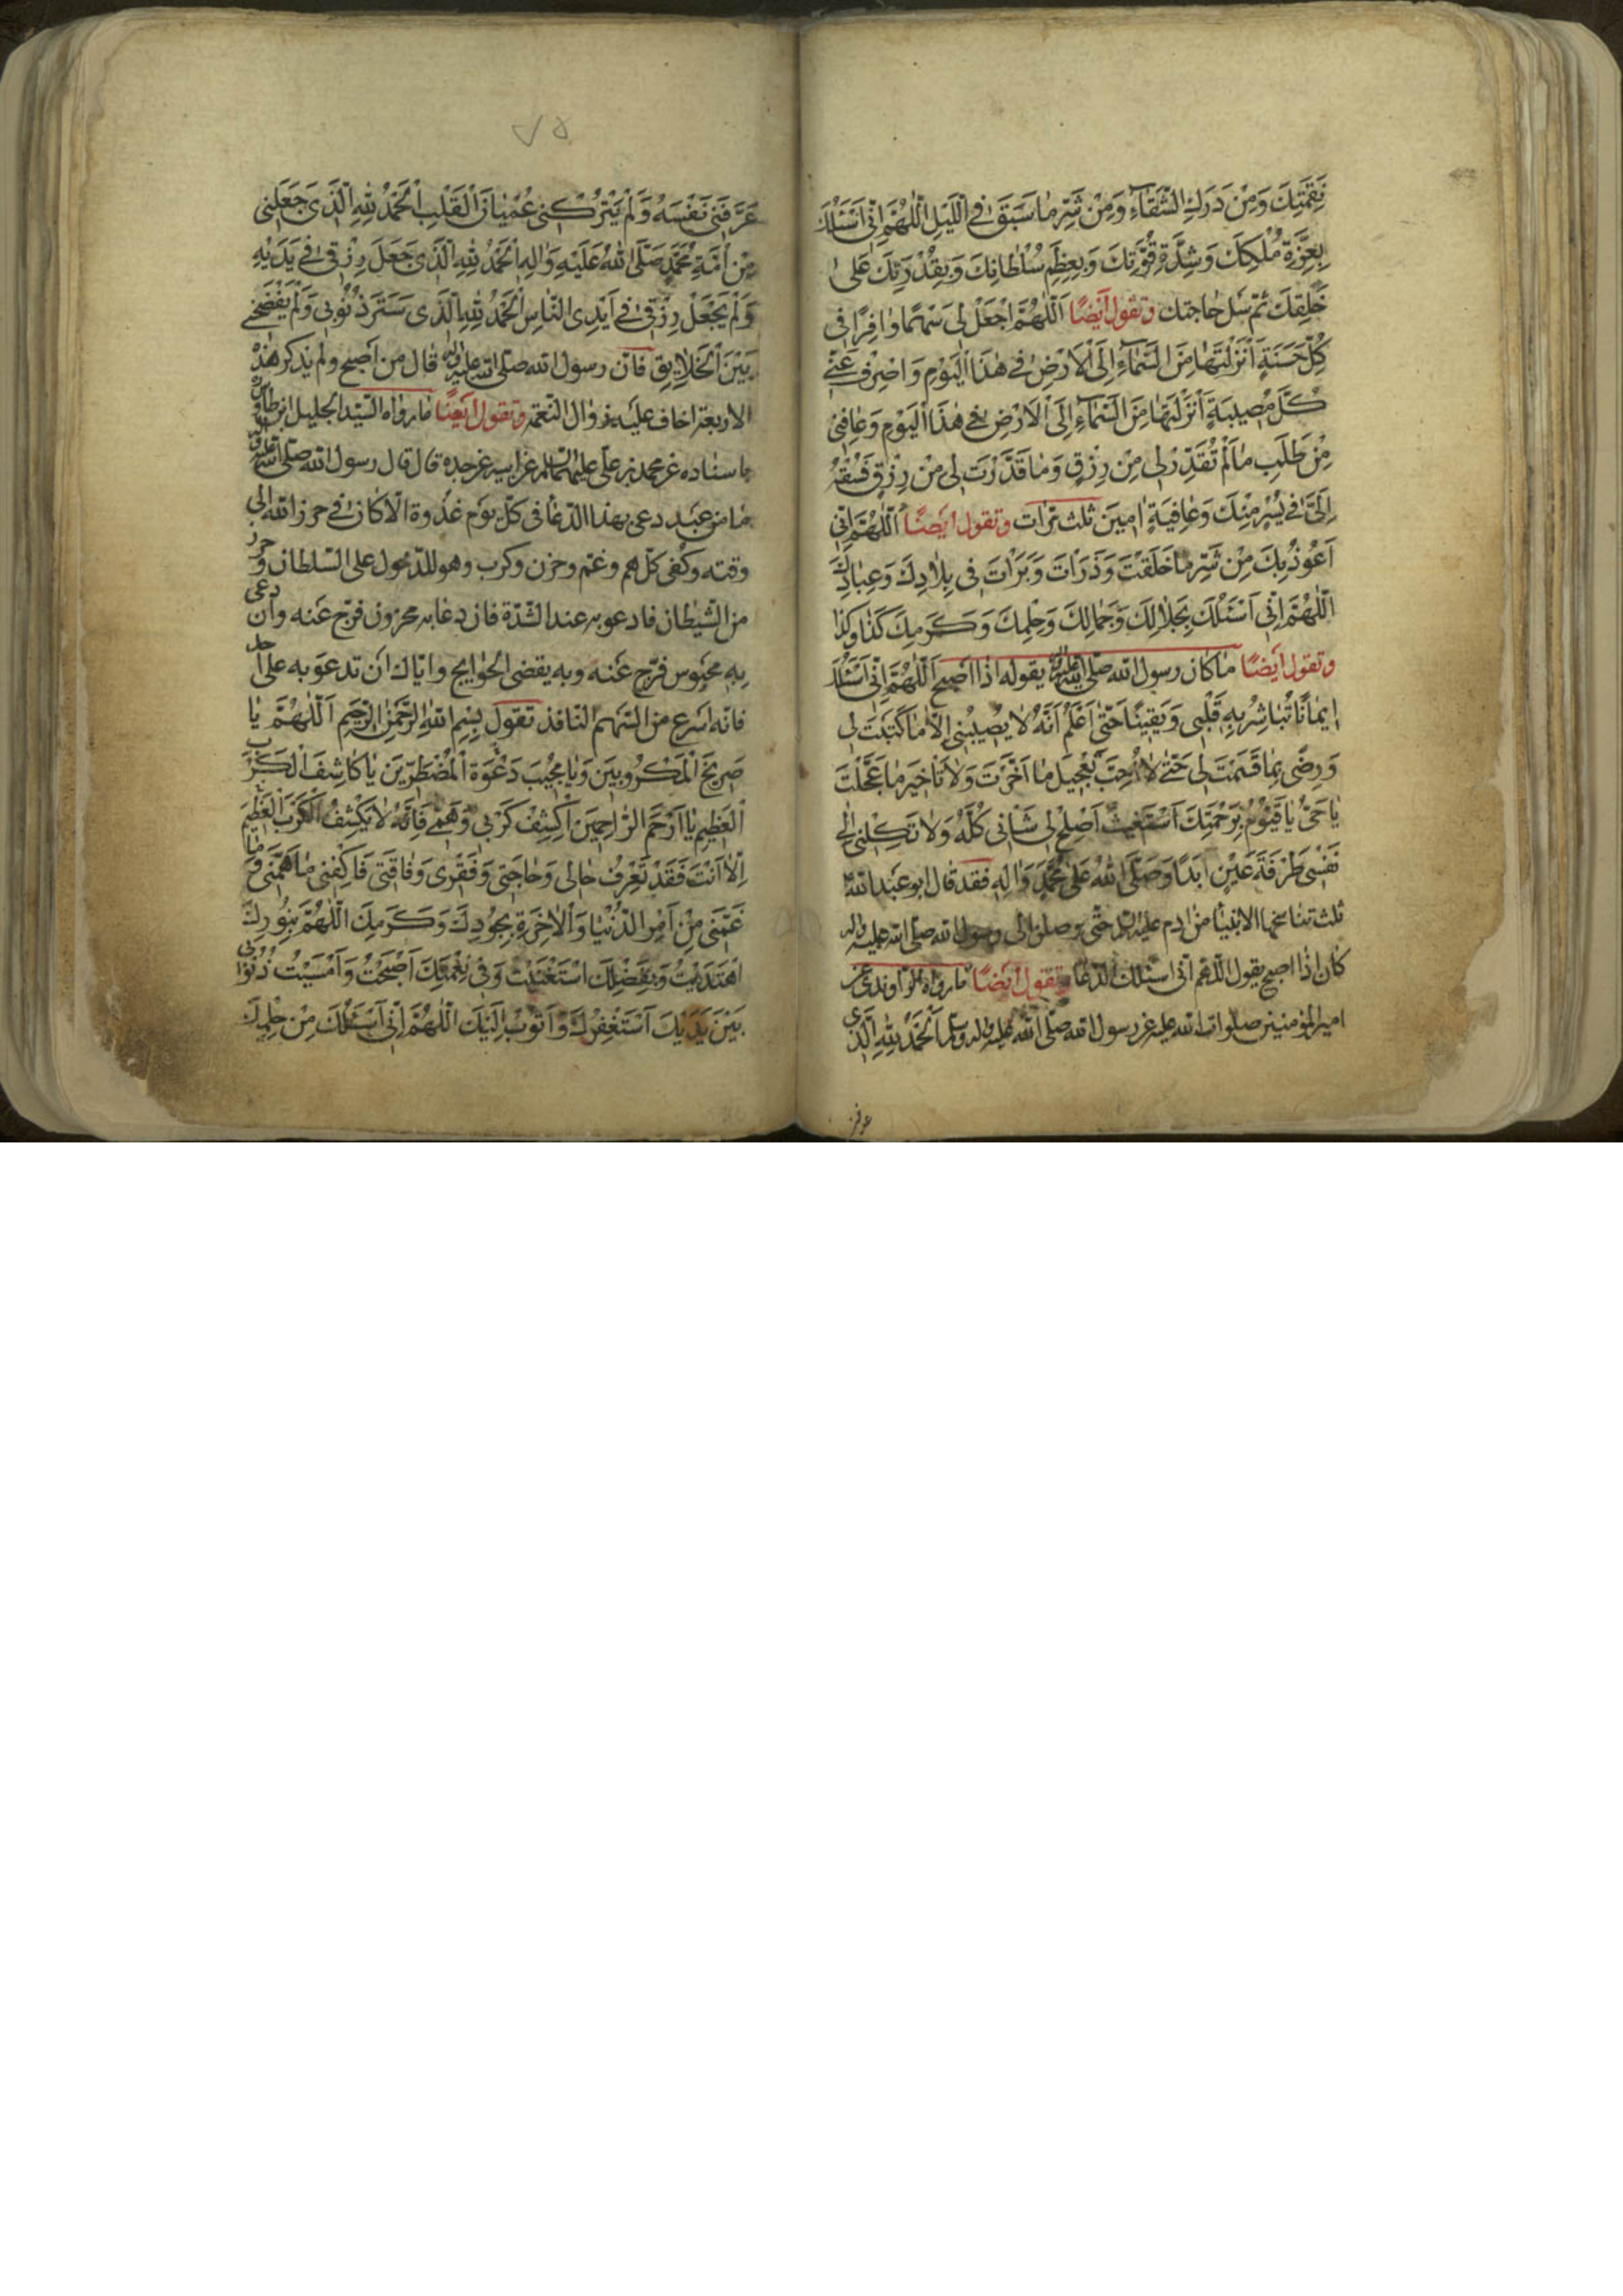 نَقِمَتِكَ وَمِنْ دَرَكِ الشَّقَآءِ وَمِنْ شَرِّ مٰا سَبَقَ فِي اللَّيْلِ اَللّٰهُمَّ اِنّي اَسْئَلُكَ
بِعِزَّةِ مُلْكِكَ وَشِدَّةِ قُوَّتِكَ وَبِعِظَمِ سُلْطٰانِكَ وَبِقُدْرَتِكَ عَلىٰ
خَلْقِكَ ثم سل حاجتك وتقول اَيضًا اَللّٰهُمَّ اجْعَلْ لي سَهْمًا وٰافِرًا في
كُلِّ حَسَنَةٍ اَنْزَلْتَهٰا مِنَ السَّمٰآءِ اِلَى الْاَرْضِ في هٰذَا الْيَوْمِ وَاصْرِفْ عَنّي
كُلَّ مُصيبَةٍ اَنْزَلْتَهٰا مِنَ السَّمٰآءِ اِلَى الْاَرْضِ في هٰذَا الْيَوْمِ وَعٰافِني
مِنْ طَلَبِ مٰا لَمْ تُقَدِّرْ لي مِنْ رِزْقٍ وَمٰا قَدَّرْتَ لي مِنْ رِزْقٍ فَسُقْهُ
اِلَيَّ في يُسْرٍ مِنْكَ وَعٰافِيَةٍ اٰمينَ ثلث مرّات وتقول ايضًا اَللّٰهُمَّ اِنّي
اَعُوذُ بِكَ مِنْ شَرِّ مٰا خَلَقْتَ وَذَرَاْتَ وَبَرَاْتَ في بِلٰادِكَ وَعِبٰادِكَ
اَللّٰهُمَّ اِنّي اَسْئَلُكَ بِجَلٰالِكَ وَجَمٰالِكَ وَحِلْمِكَ وَكَرَمِكَ كَذٰا وَكَذٰا
وتقول ايضًا مٰا كان رسول الله صلّى الله عليه وآله يقوله اذا اصبح اَللّٰهُمَّ اِنّي اَسْئَلُكَ
ايمٰانًا تُبٰاشِرُ بِهِ قَلْبي وَيَقينًا حَتّىٰ اَعْلَمَ اَنَّهُ لٰا يُصيبُني اِلّٰا مٰا كَتَبْتَ لي
وَرَضِّني بِمٰا قَسَمْتَ لي حَتّىٰ لٰا اُحِبَّ تَعْجيلَ مٰا اَخَّرْتَ وَلٰا تَأْخيرَ مٰا عَجَّلْتَ
يٰا حَيُّ يٰا قَيُّومُ بِرَحْمَتِكَ اَسْتَغيثُ اَصْلِحْ لي شَأْني كُلَّهُ وَلٰا تَكِلْني اِلىٰ
نَفْسي طَرْفَةَ عَيْنٍ اَبَدًا وَصَلَّى اللهُ عَلىٰ مُحَمَّدٍ وَاٰلِهِ فقد قال ابو عَبدالله
ثلث تناسخها الانبياء من ادم عليه السلام حتّى وصلن الى رسول الله صلّى الله عليه واله
كان اذا اصبح يقول اللّهم انّى اسئلك الدعاء وتقول ايضًا مٰا رواه الراوندى عن
امير المؤمنين صلوات الله عليه عن رسول الله صلّى الله عليه واله وسلم اَلْحَمْدُ لِلّٰهِ الَّذي
عرفنى
٧٥
عَرَّفَني نَفْسَهُ وَلَمْ يَتْرُكْني عُمْيٰانَ الْقَلْبِ اَلْحَمْدُ لِلّٰهِ الَّذي جَعَلَني
مِنْ اُمَّةِ مُحَمَّدٍ صَلَّى اللهُ عَلَيْهِ وَاٰلِهِ اَلْحَمْدُ لِلّٰهِ الَّذي جَعَلَ رِزْقي في يَدَيْهِ
وَلَمْ يَجْعَلْ رِزْقي في اَيْدِي النّٰاسِ اَلْحَمْدُ لِلّٰهِ الَّذي سَتَرَ ذُنُوبي وَلَمْ يَفْضَحْني
بَيْنَ الْخَلٰايِقِ فان رسول الله صلّى الله عليه وآله قال من اصبح ولم يذكر هذه
الاربعة اخاف عليه زوال النعمة وتقول ايضًا مٰا رواه السّيد الجليل ابن طاوس
باسناده عن محمد بن على عليهما السلام عن ابيه عن جده قال قال رسول الله صلّى الله عليه وآله
مٰا من عَبد دعى بهذا الدّعٰا في كلّ يوم غدوة الّا كان في حرز الله الى
وقته وكفى كلّ هم وغم وحزن وكرب وهو للدّخول على السّلطان وحرز
من الشّيطان فادعو به عند الشّدّة فان دعا به محزون فرّج عَنه وان دعى
به محبوس فرّج عَنه وبه يقضى الحوايج وايّاك ان تدعو به على احد
فانّه اسرع من السّهم النّافذ تقول بِسْمِ اللهِ الرَّحْمٰنِ الرَّحيمِ اَللّٰهُمَّ يٰا
صَريخَ الْمَكْرُوبينَ وَيٰا مُجيبَ دَعْوَةِ الْمُضْطَرّينَ يٰا كٰاشِفَ الْكَرْبِ
الْعَظيمِ يٰا اَرْحَمَ الرّٰاحِمينَ اِكْشِفْ كَرْبي وَهَمّي فَاِنَّهُ لٰا يَكْشِفُ الْكَرْبَ الْعَظيمَ
اِلّٰا اَنْتَ فَقَدْ تَعْرِفُ حٰالي وَحٰاجَتي وَفَقْري وَفٰاقَتي فَاكْفِني مٰا اَهَمَّني وَمٰا
غَمَّني مِنْ اَمْرِ الدُّنْيٰا وَالْاٰخِرَةِ بِجُودِكَ وَكَرَمِكَ اَللّٰهُمَّ بِنُورِكَ
اهْتَدَيْتُ وَبِفَضْلِكَ اسْتَغْنَيْتُ وَفي نِعْمَتِكَ اَصْبَحْتُ وَاَمْسَيْتُ ذُنُوبي
بَيْنَ يَدَيْكَ اَسْتَغْفِرُكَ وَاَتُوبُ اِلَيْكَ اَللّٰهُمَّ اِنّي اَسْئَلُكَ مِنْ حِلْمِكَ